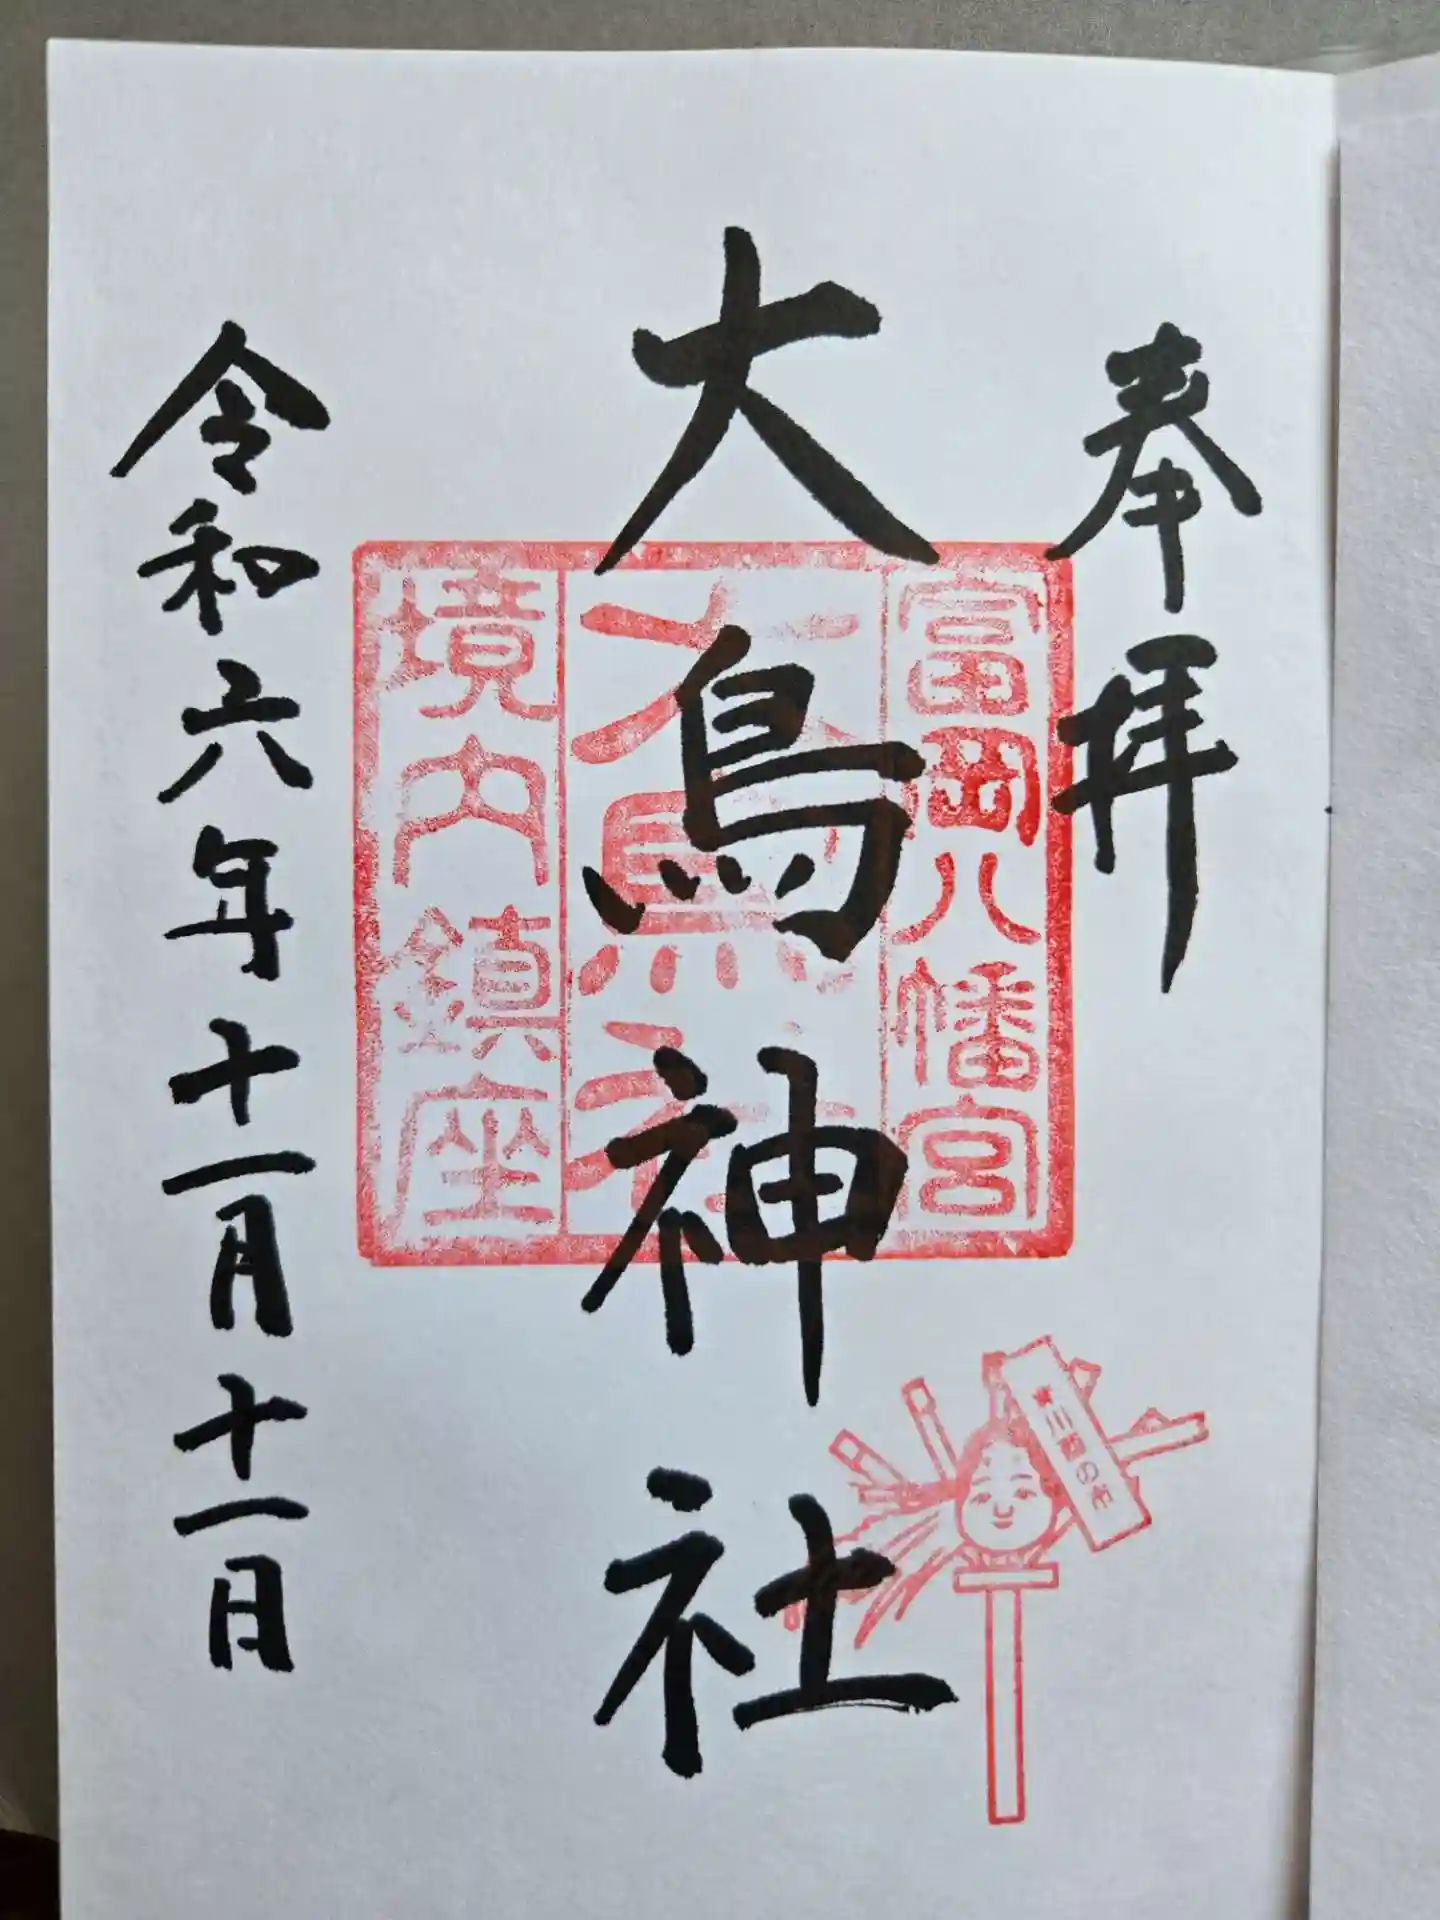 奉拝
大鳥神社
令和六年十一月十一日
富岡八幡宮
大鳥社
境内鎮座